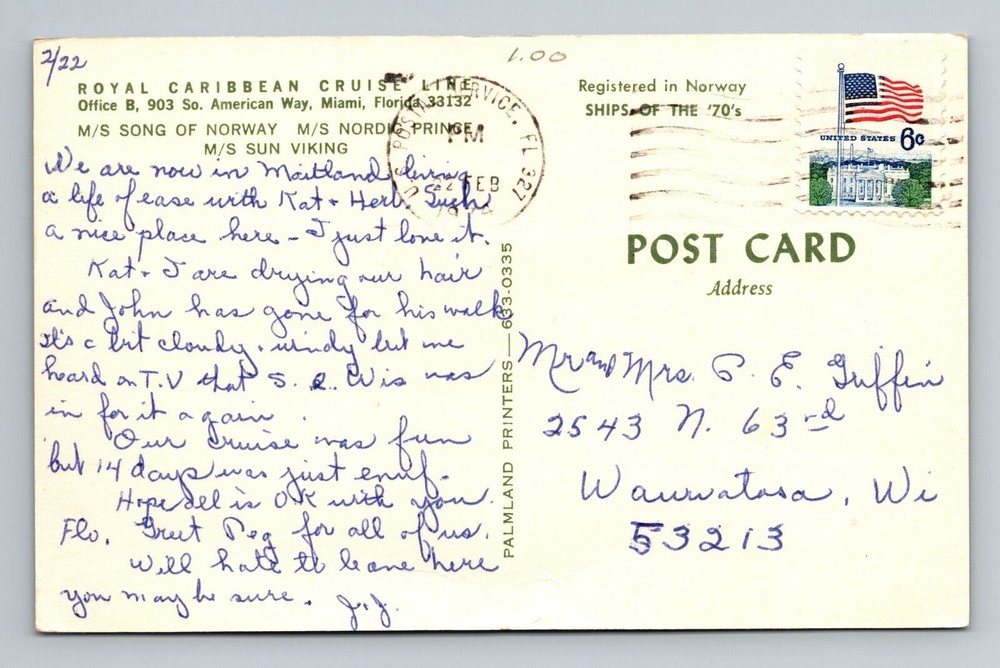 2/22
1.00
ROYAL CARIBBEAN CRUISE LINE
Office B, 903 So. American Way, Miami, Florida 33132
M/S SONG OF NORWAY M/S NORDIC PRINCE
M/S SUN VIKING
We are now in Maitland living
a life of ease with Kat + Herb. Such
a nice place here - I just love it.
Kat + I are drying our hair
and John has gone for his walk
It's a bit cloudy + windy but we
heard on T.V that S. E. Wis was
in for it again.
Our cruise was fun
but 14 days was just enuf.
Hope all is OK with you
Flo. Greet Peg for all of us.
Will hate to leave here
you may be sure. J.J.
PALMLAND PRINTERS — 633-0335
Registered in Norway
SHIPS OF THE '70's
U.S. POSTAL SERVICE, FL 327
PM
22 FEB
UNITED STATES 6c
POST CARD
Address
Mr and Mrs. P. E. Griffin
2543 N. 63rd
Wauwatosa, Wi
53213